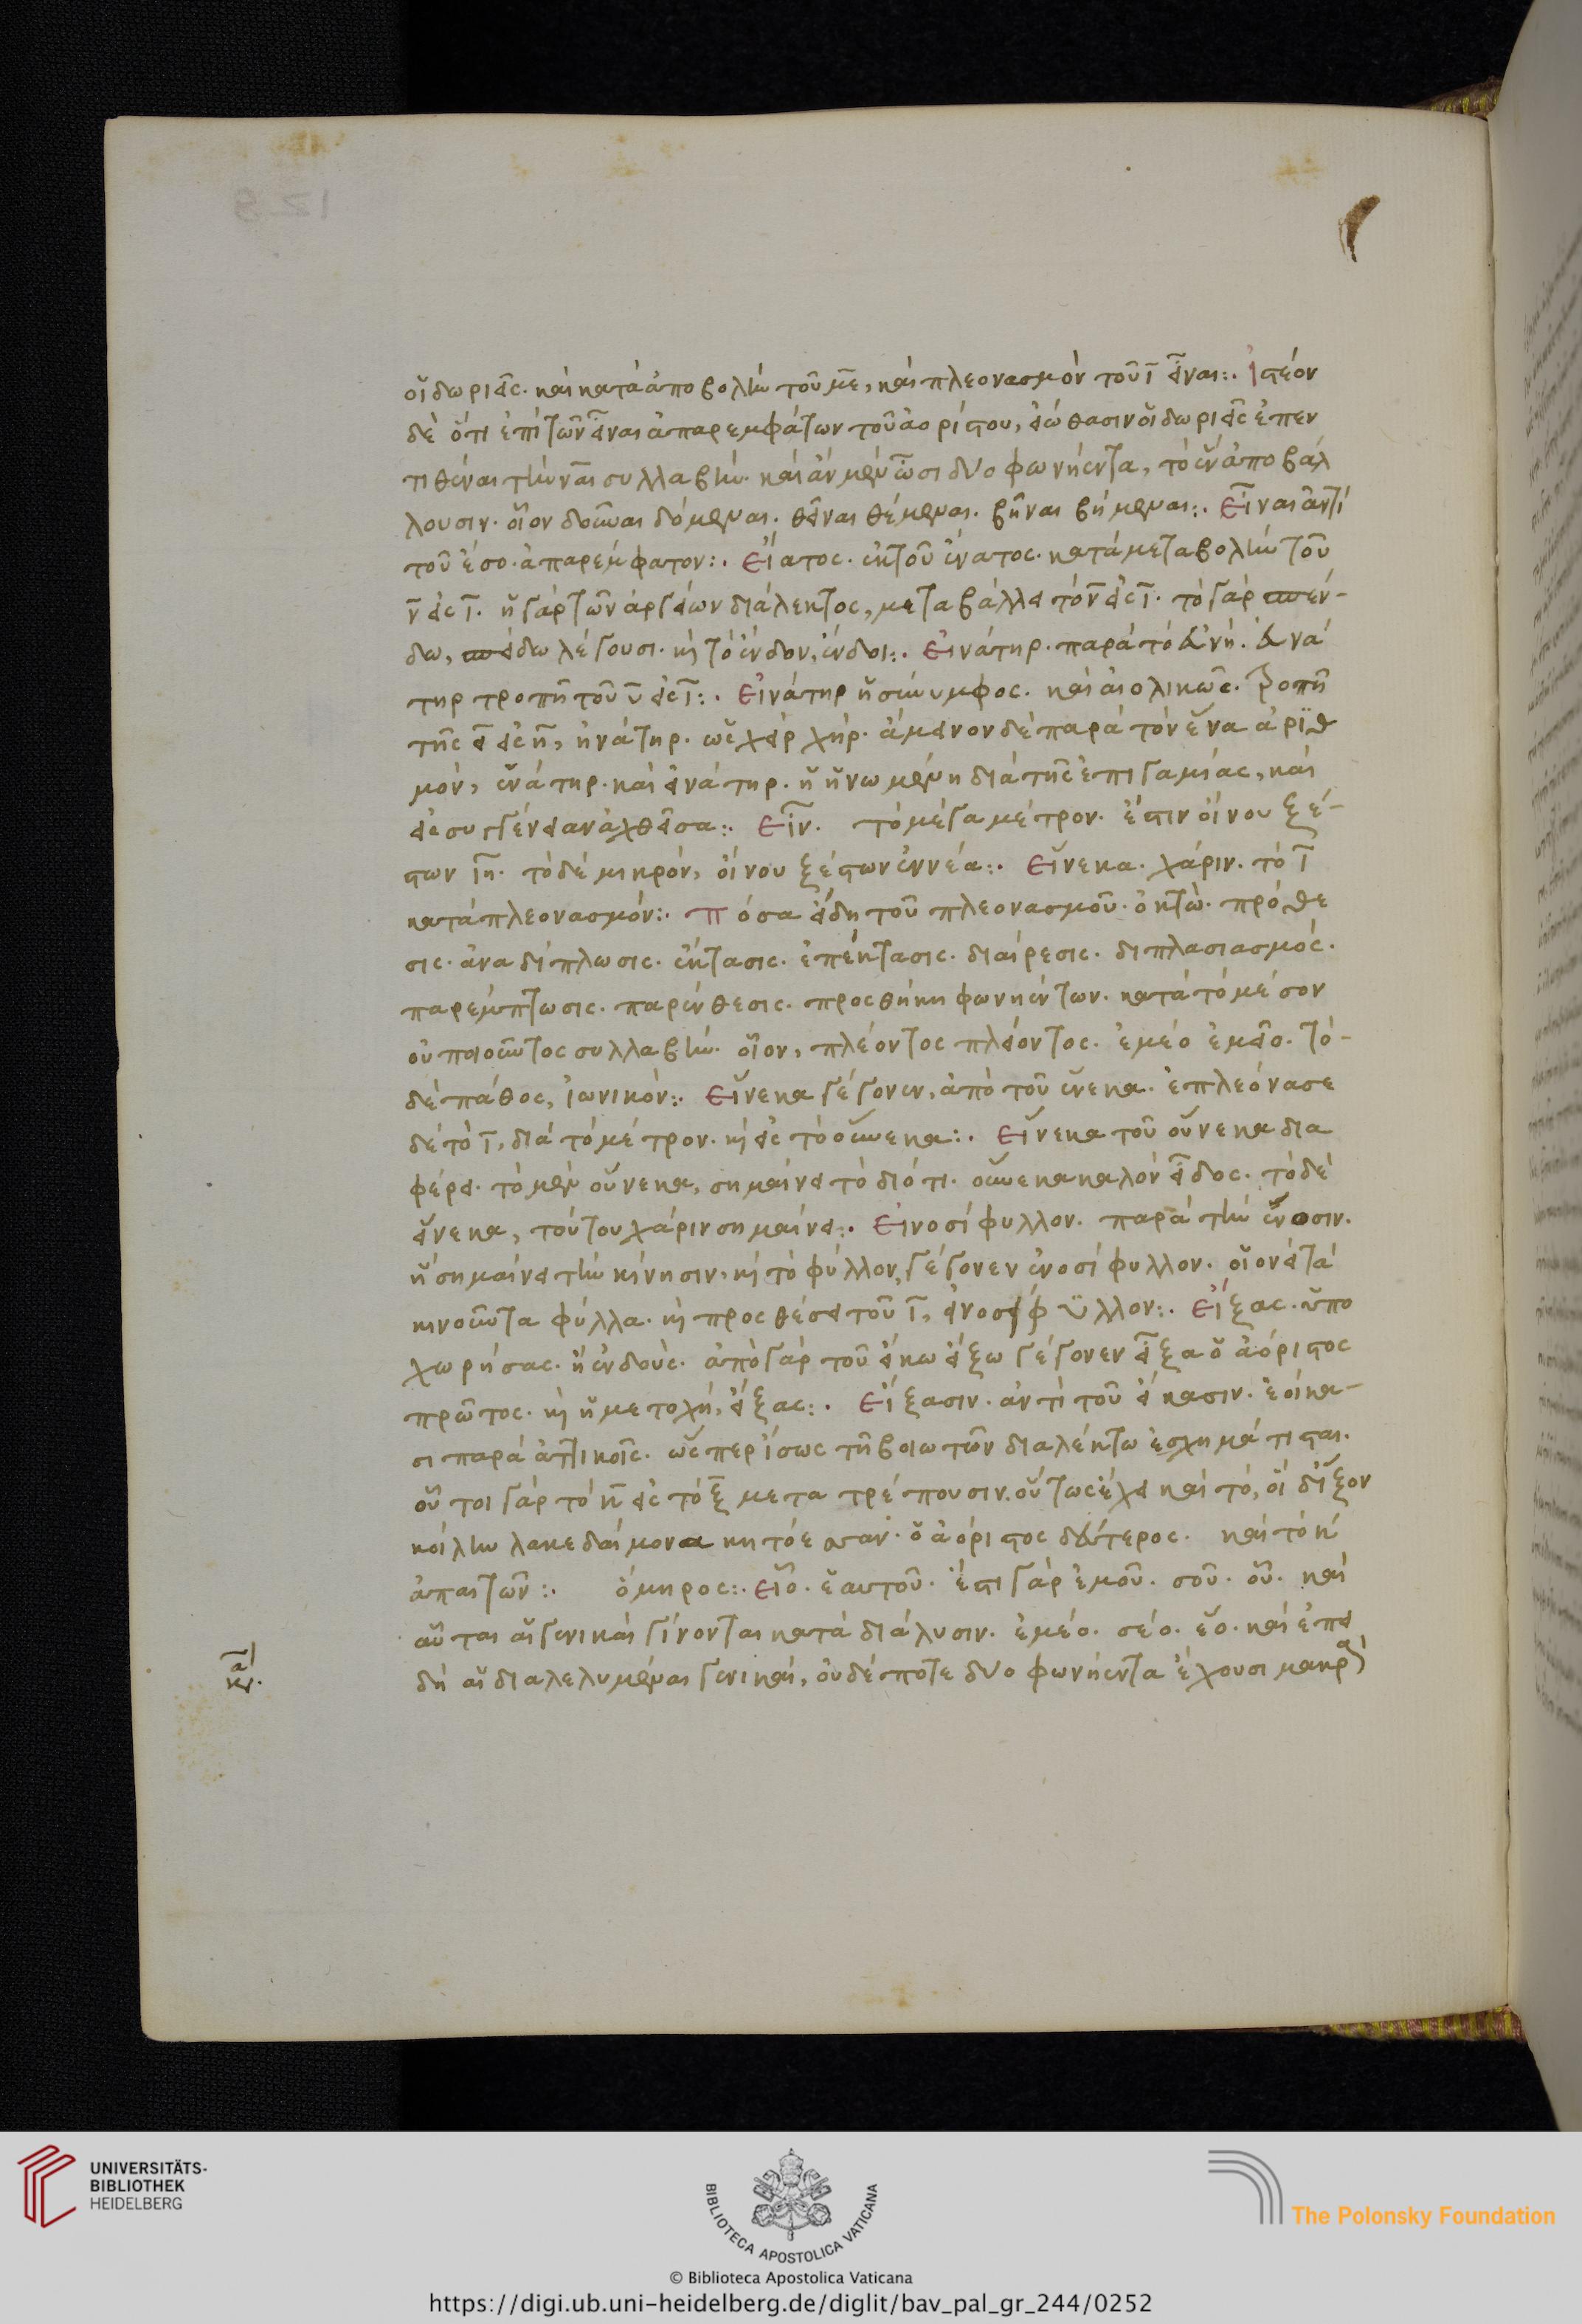 οἱ δωριεῖς. καὶ κατὰ ἀποβολὴν τοῦ με, καὶ πλεονασμὸν τοῦ ι εἶναι:. Ἰστέον
δὲ ὅτι ἐπὶ τῶν εἶναι ἀπαρεμφάτων τοῦ ἀορίστου, εἰώθασιν οἱ δωριεῖς ἐπεν
τιθέναι τὴν ναι συλλαβήν. καὶ ἂν μὲν ὦσι δύο φωνήεντα, τὸ ἓν ἀποβάλ
λουσιν. οἷον δοῦναι δόμεναι. θεῖναι θέμεναι. βῆναι βήμεναι:. Εἶναι ἀντὶ
τοῦ ἔσο. ἀπαρέμφατον:. Εἵατος. ἐκ τοῦ ἔνατος. κατὰ μεταβολὴν τοῦ
ν εἰς ι. ἡ γὰρ τῶν ἀργείων διάλεκτος, μεταβάλλει τὸ ν εἰς ι. τὸ γὰρ σπέν-
δω, σπείδω λέγουσι. καὶ τὸ ἔνδον, ἔνδοι:. Εἰνάτηρ. παρὰ τὸ εὐνή. εὐνά
τηρ τροπῇ τοῦ υ εἰς ι:. Εἰνάτηρ ἡ σύνυμφος. καὶ αἰολικῶς. τροπῇ
τῆς ει εἰς η, ἠνάτηρ. ὡς χεὶρ χήρ. ἄμεινον δὲ παρὰ τὸν ἕνα ἀριθ
μόν, ἑνάτηρ. καὶ εἰνάτηρ. ἡ ἡνωμένη διὰ τῆς ἐπιγαμίας, καὶ
εἰς συγγένειαν ἀχθεῖσα:. Εἵν. τὸ μέγα μέτρον. ἔστιν οἴνου ξέ-
στων ιη. τὸ δὲ μικρόν, οἴνου ξέστων ἐννέα:. Εἵνεκα. χάριν. τὸ ι
κατὰ πλεονασμόν:. Πόσα εἴδη τοῦ πλεονασμοῦ. ὀκτώ. πρόθε
σις. ἀναδίπλωσις. ἔκτασις. ἐπέκτασις. διαίρεσις. διπλασιασμός.
παρέμπτωσις. παρένθεσις. προσθήκη φωνηέντων. κατὰ τὸ μέσον
οὐ ποιοῦντος συλλαβήν. οἷον, πλέοντος πλείοντος. ἐμέο ἐμεῖο. τὸ-
δὲ πάθος, ἰωνικόν:. Εἵνεκα γέγονεν, ἀπὸ τοῦ ἕνεκα. ἐπλεόνασε
δὲ τὸ ι, διὰ τὸ μέτρον. καὶ εἰς τὸ οὕνεκα:. Εἵνεκα τοῦ οὕνεκα δια
φέρει. τὸ μὲν οὕνεκα, σημαίνει τὸ διότι. οὕνεκα καλὸν εἶδος. τὸ δὲ
εἵνεκα, τούτου χάριν σημαίνει:. Εἰνοσίφυλλον. παρὰ τὴν ἔνοσιν.
ἣ σημαίνει τὴν κίνησιν, καὶ τὸ φύλλον, γέγονεν ἐνοσίφυλλον. οἱονεὶ τὰ
κινοῦντα φύλλα. καὶ προσθέσει τοῦ ι, εἰνοσίφϋλλον:. Εἴξας. ὑπο
χωρήσας. ἢ ἐνδούς. ἀπὸ γὰρ τοῦ εἴκω εἴξω γέγονεν εἶξα ὁ ἀόριστος
πρῶτος. καὶ ἡ μετοχή, εἴξας:. Εἴξασιν. ἀντὶ τοῦ εἴκασιν. ἐοίκα-
σι παρὰ ἀττικοῖς. ὥσπερ ἴσως τῇ βοιωτῶν διαλέκτω ἐσχημάτισται.
οὗτοι γὰρ τὸ κ εἰς τὸ ξ μετατρέπουσιν. οὕτως ἔχει καὶ τό, οἱ δ ἷξον
κοίλην λακεδαίμονα κητόεσσαν. ὁ ἀόριστος δεύτερος. καὶ τὸ κ
ἁπαιτῶν:. ὅμηρος:. Εἷο. ἑαυτοῦ. ἔστι γὰρ ἐμοῦ. σοῦ. οὗ. καὶ
αὗται αἱ γενικαὶ γίνονται κατὰ διάλυσιν. ἐμέο. σέο. ἕο. καὶ ἐπει
δὴ αἱ διαλελυμέναι γενικαί, οὐδέποτε δύο φωνήεντα ἔχουσι μακρὰ
UNIVERSITÄTS-
BIBLIOTHEK
HEIDELBERG
BIBLIOTECA APOSTOLICA VATICANA
The Polonsky Foundation
© Biblioteca Apostolica Vaticana
https://digi.ub.uni-heidelberg.de/diglit/bav_pal_gr_244/0252